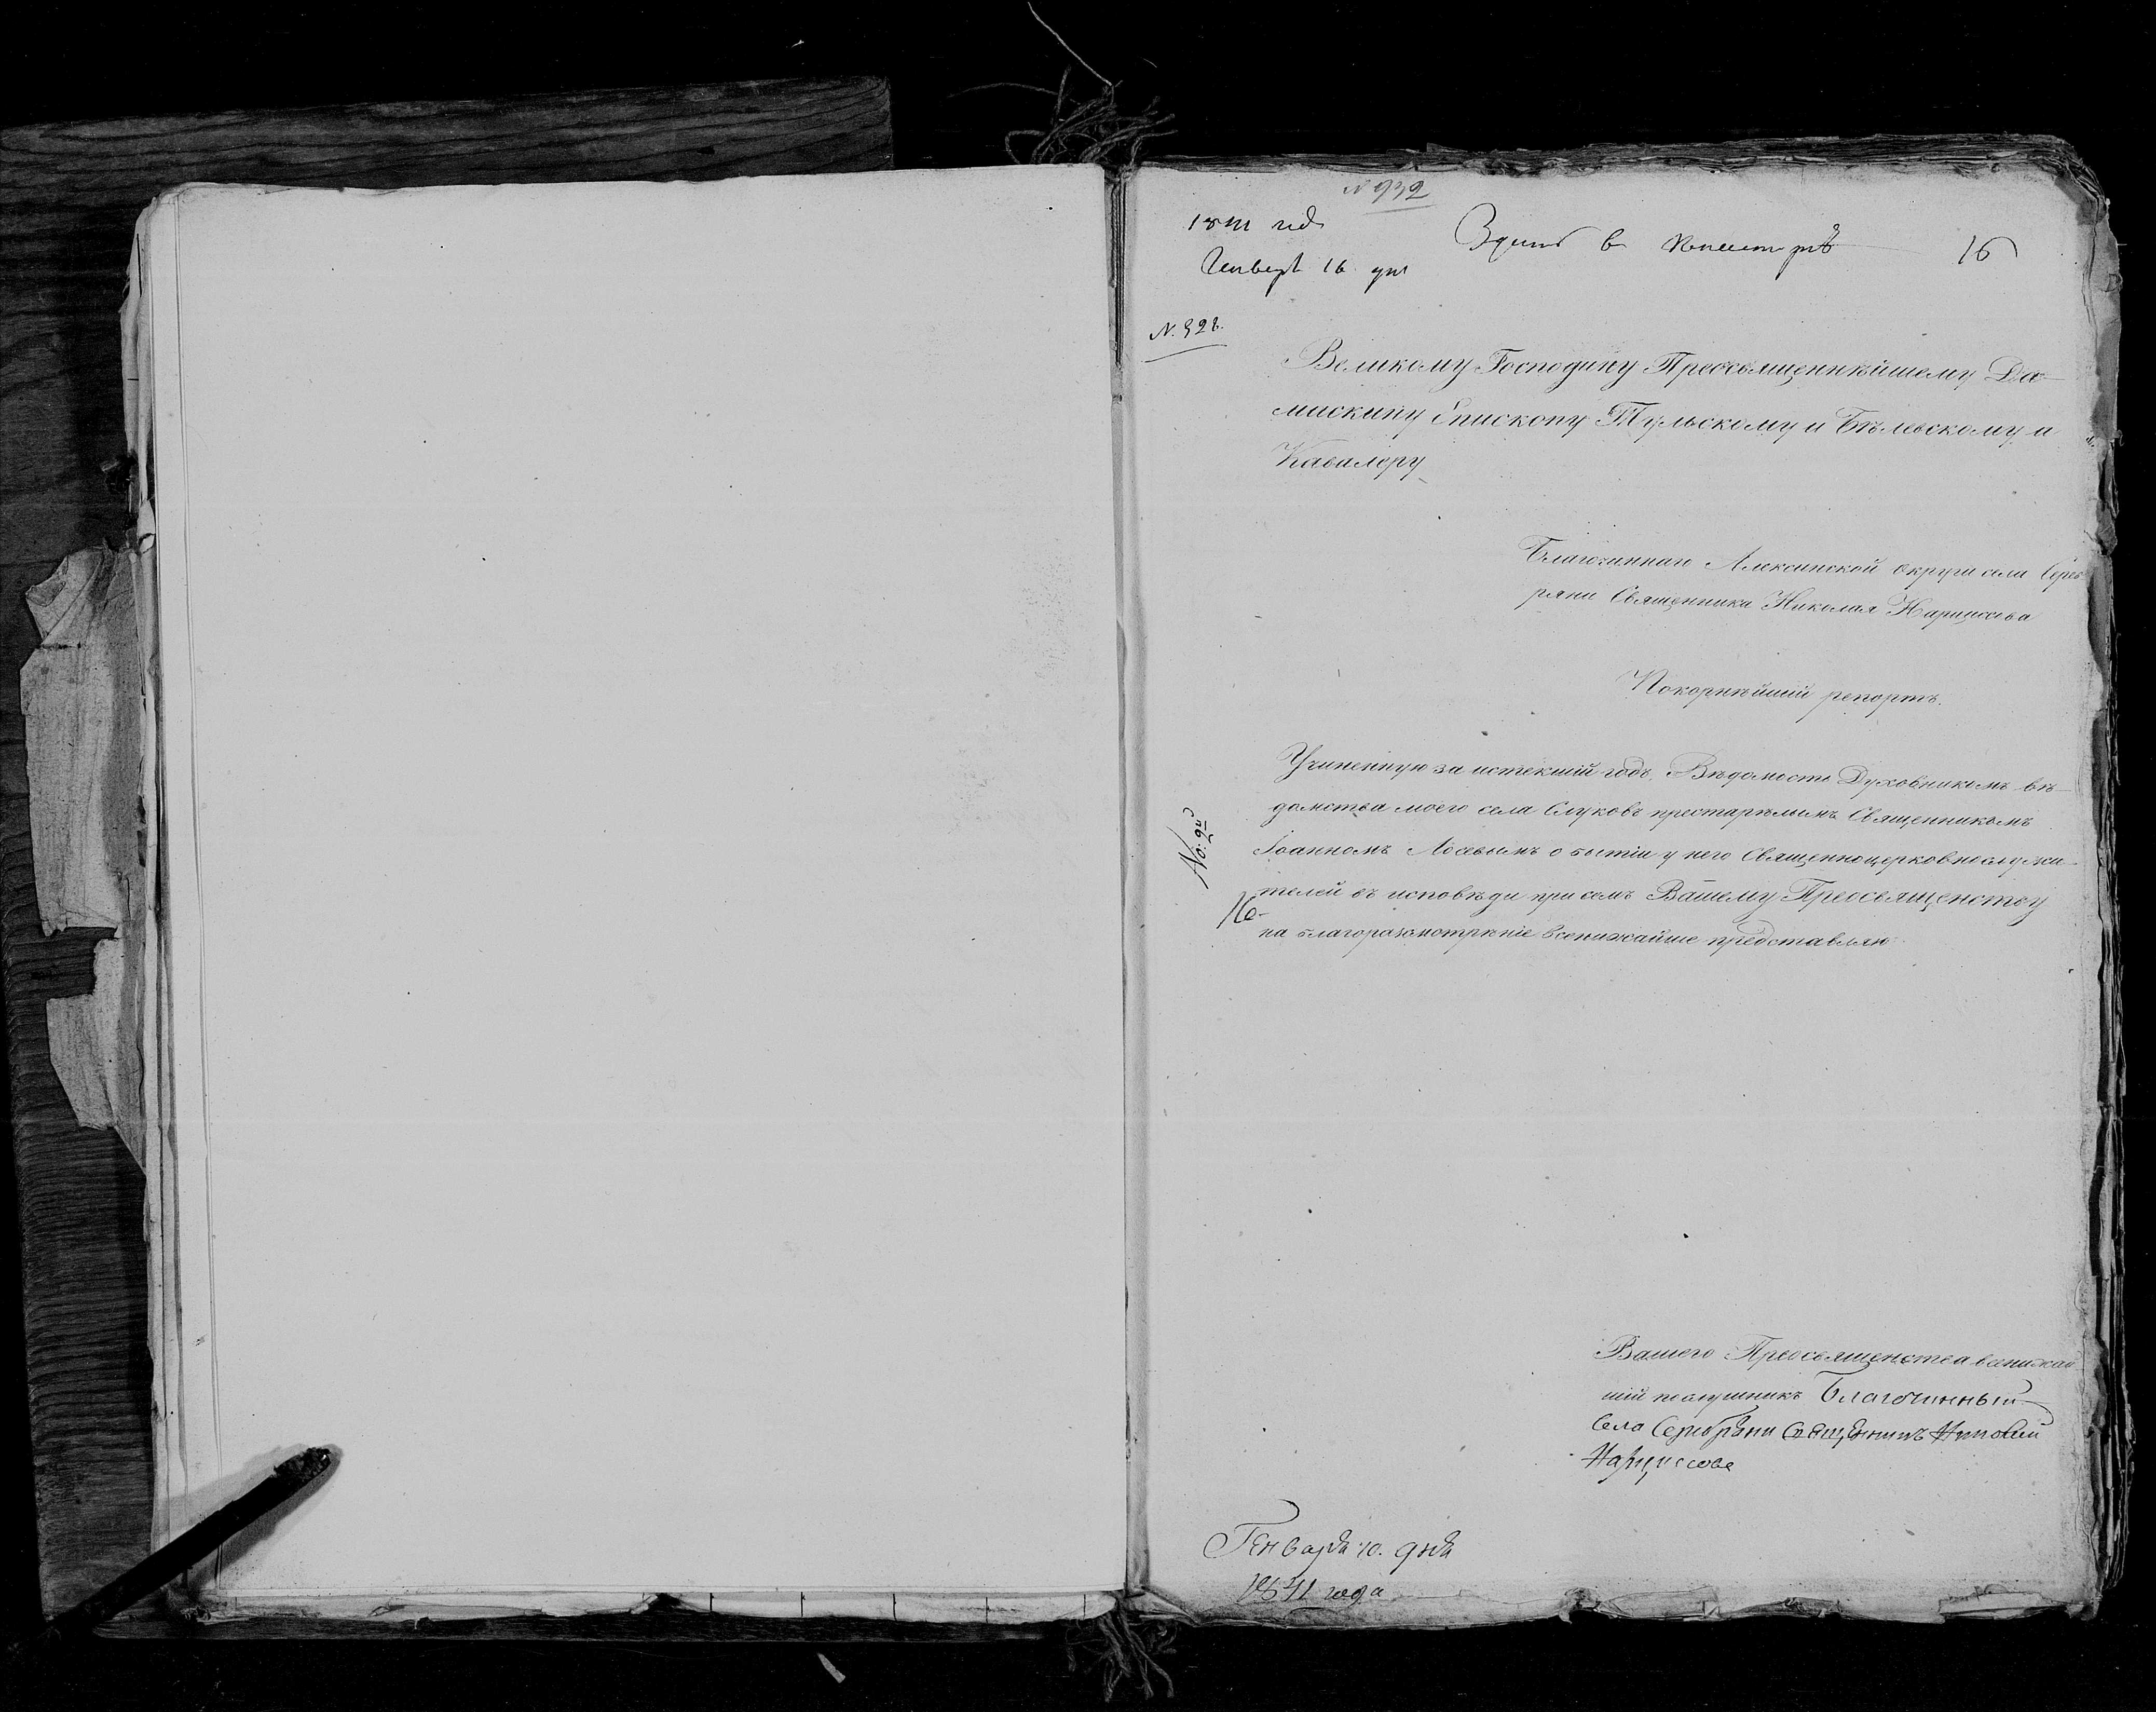 N 932
1841 года
Генваря 16 дня
16
N. 328.
Великому Господину Преосвященнѣйшему Да-
маскину Епископу Тульскому и Бѣлевскому и
Кавалеру
Благочиннаго Алексинской округи села Сереб
ряни Священника Николая Нарциссова
Покорнѣйшій репортъ.
Учиненную за истекшій годъ, Вѣдомость Духовникомъ вѣ-
домства моего села Слуковъ престарѣлымъ Священникомъ
Іоанномъ Лосевымъ о бытіи у него Священноцерковнослужи-
телей въ исповѣди при семъ Вашему Преосвященству
на благоразсмотрѣніе всенижайше представляю
No:
16
Вашего Преосвященства всенижай
шій послушникъ Благочинный
Села Серебряни Священникъ Николай
Нарциссовъ
Генваря 10. дня
1841 года